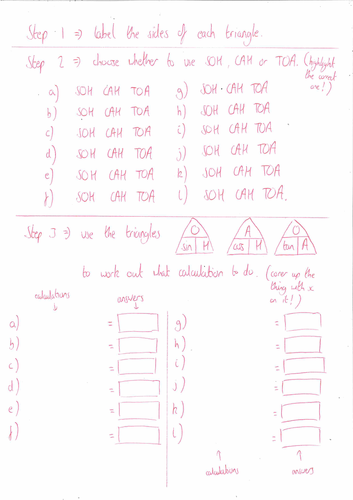 Step 1 => label the sides of each triangle.
Step 2 => choose whether to use SOH, CAH or TOA. (highlight the correct one!)
a) SOH CAH TOA g) SOH CAH TOA
b) SOH CAH TOA h) SOH CAH TOA
c) SOH CAH TOA i) SOH CAH TOA
d) SOH CAH TOA j) SOH CAH TOA
e) SOH CAH TOA k) SOH CAH TOA
f) SOH CAH TOA l) SOH CAH TOA.
Step 3 => use the triangles O sin H A cos H O tan A
to work out what calculation to do. (cover up the thing with x in it!)
calculations answers
a) = g) =
b) = h) =
c) = i) =
d) = j) =
e) = k) =
f) = l) =
calculations answers